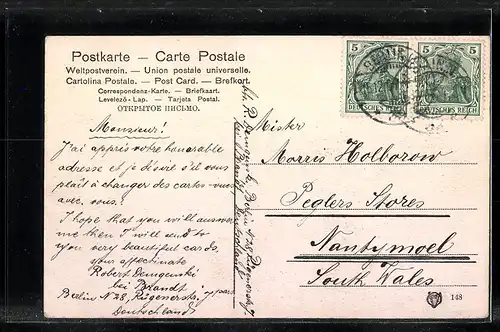 Postkarte — Carte Postale
Weltpostverein. — Union postale universelle.
Cartolina Postale. — Post Card. — Brefkort.
Correspondenz-Karte. — Briefkaart.
Levelező-Lap. — Tarjeta Postal.
ОТКРЫТОЕ ПИСЬМО.
Monsieur!
J'ai appris votre honorable
adresse et je désire s'il vous
plaît à changer des cartes vues
avec vous!
I hope that you will answer
me then I will send to
you very beautiful cards.
your affectinate
Robert
bei Brandt
Berlin N 28,
Deutschland
Berlin N 28
bei Brandt Deutschland
5 5
DEUTSCHES REICH DEUTSCHES REICH
BERLIN
Mister
Morris Holborow
Peglers Stores
Nantymoel
South Wales
148